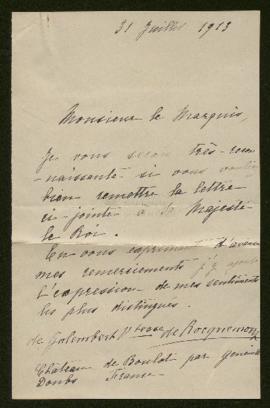 31 Juillet 1913
Monsieur le Marquis,
Je vous serai très-recon
naissante si vous
bien remettre la lettre
ci-jointe à Sa Majesté
le Roi.
En vous exprimant d'avance
mes remerciements j'y ajoute
l'expression de mes sentiments
les plus distingués.
de
Château de par
Doubs France